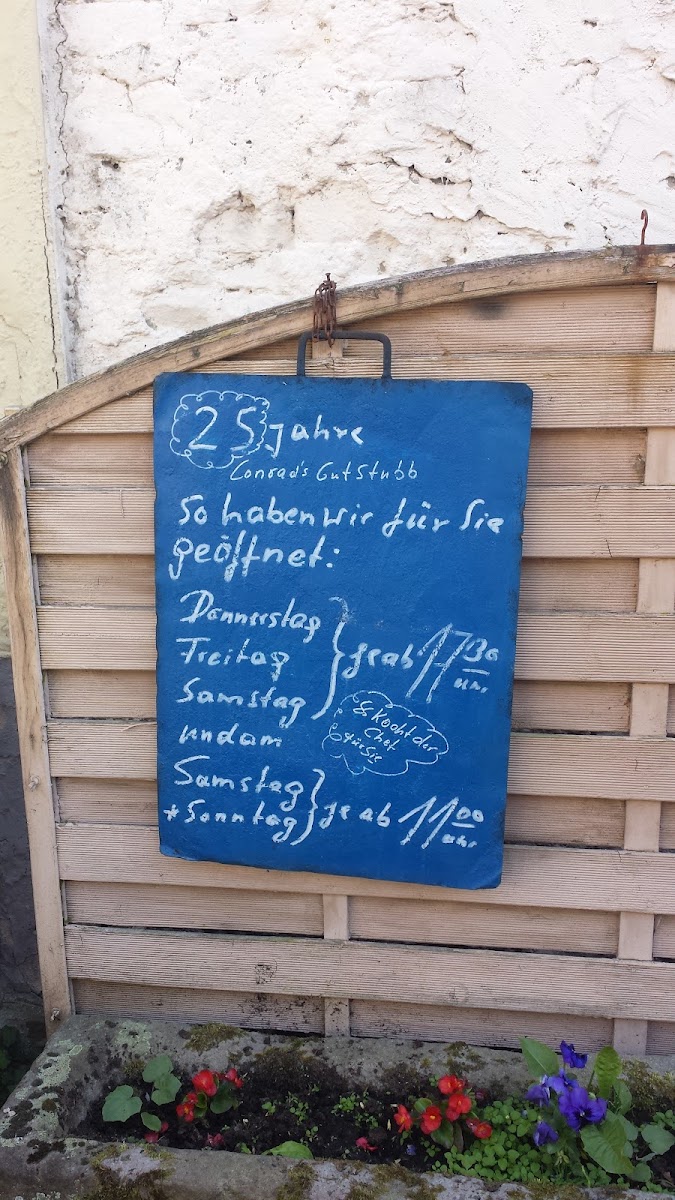 25 Jahre
Conrad's Gutstubb
So haben wir für Sie
geöffnet:
Donnerstag
Freitag
Samstag
je ab 17 30
uhr
und am
Es kocht der
Chef
für Sie
Samstag
+ Sonntag
je ab 11 00
uhr